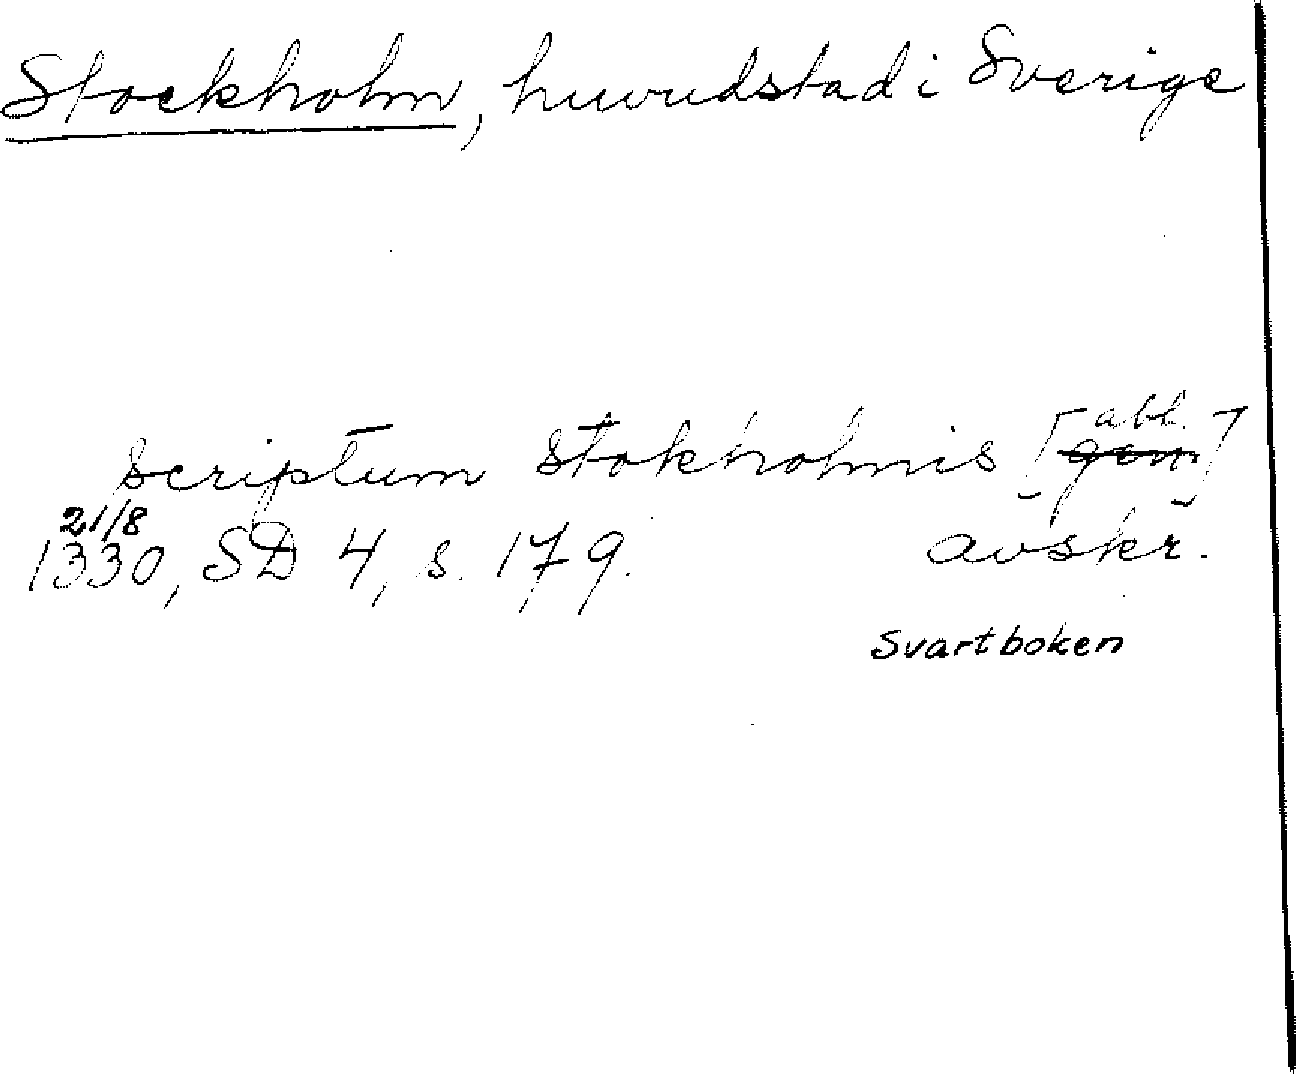 Stockholm, huvudstad i Sverige
scriptum Stokholmis [abl. gen]
21/8
1330, SD 4, s. 179. avskr.
Svartboken